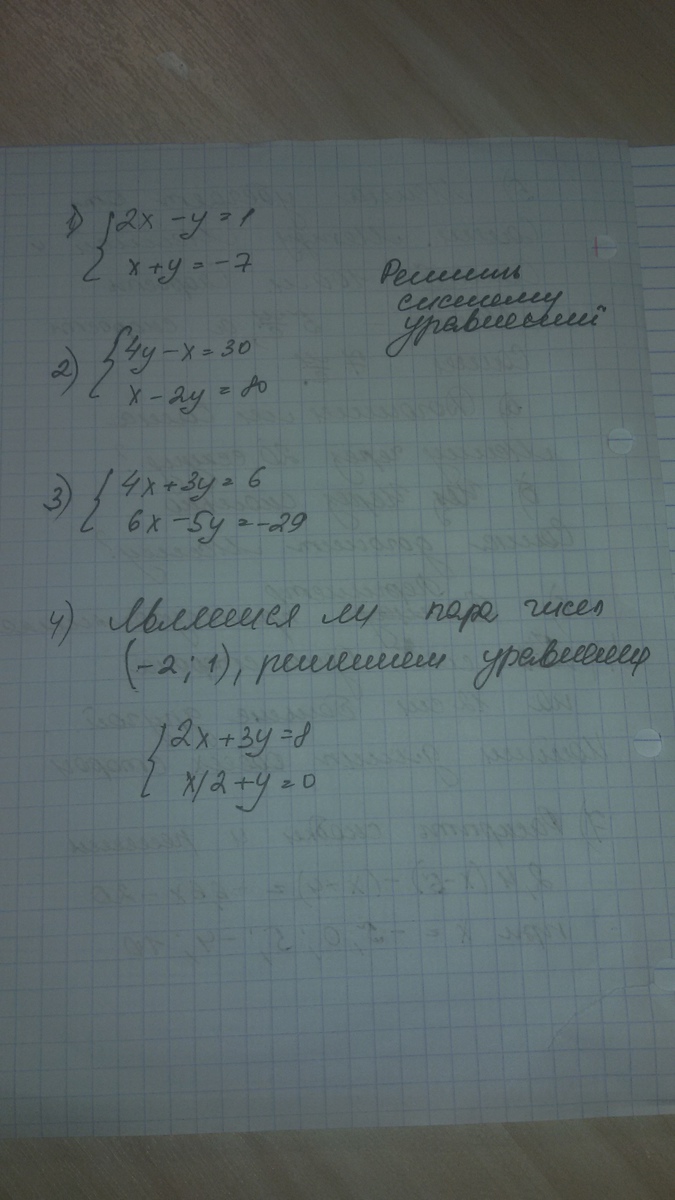 1) { 2x - y = 1
x + y = -7
Решить
систему
уравнений
2) { 4y - x = 30
x - 2y = 80
3) { 4x + 3y = 6
6x - 5y = -29
4) Является ли пара чисел
(-2; 1), решением уравнения
{ 2x + 3y = 8
x/2 + y = 0